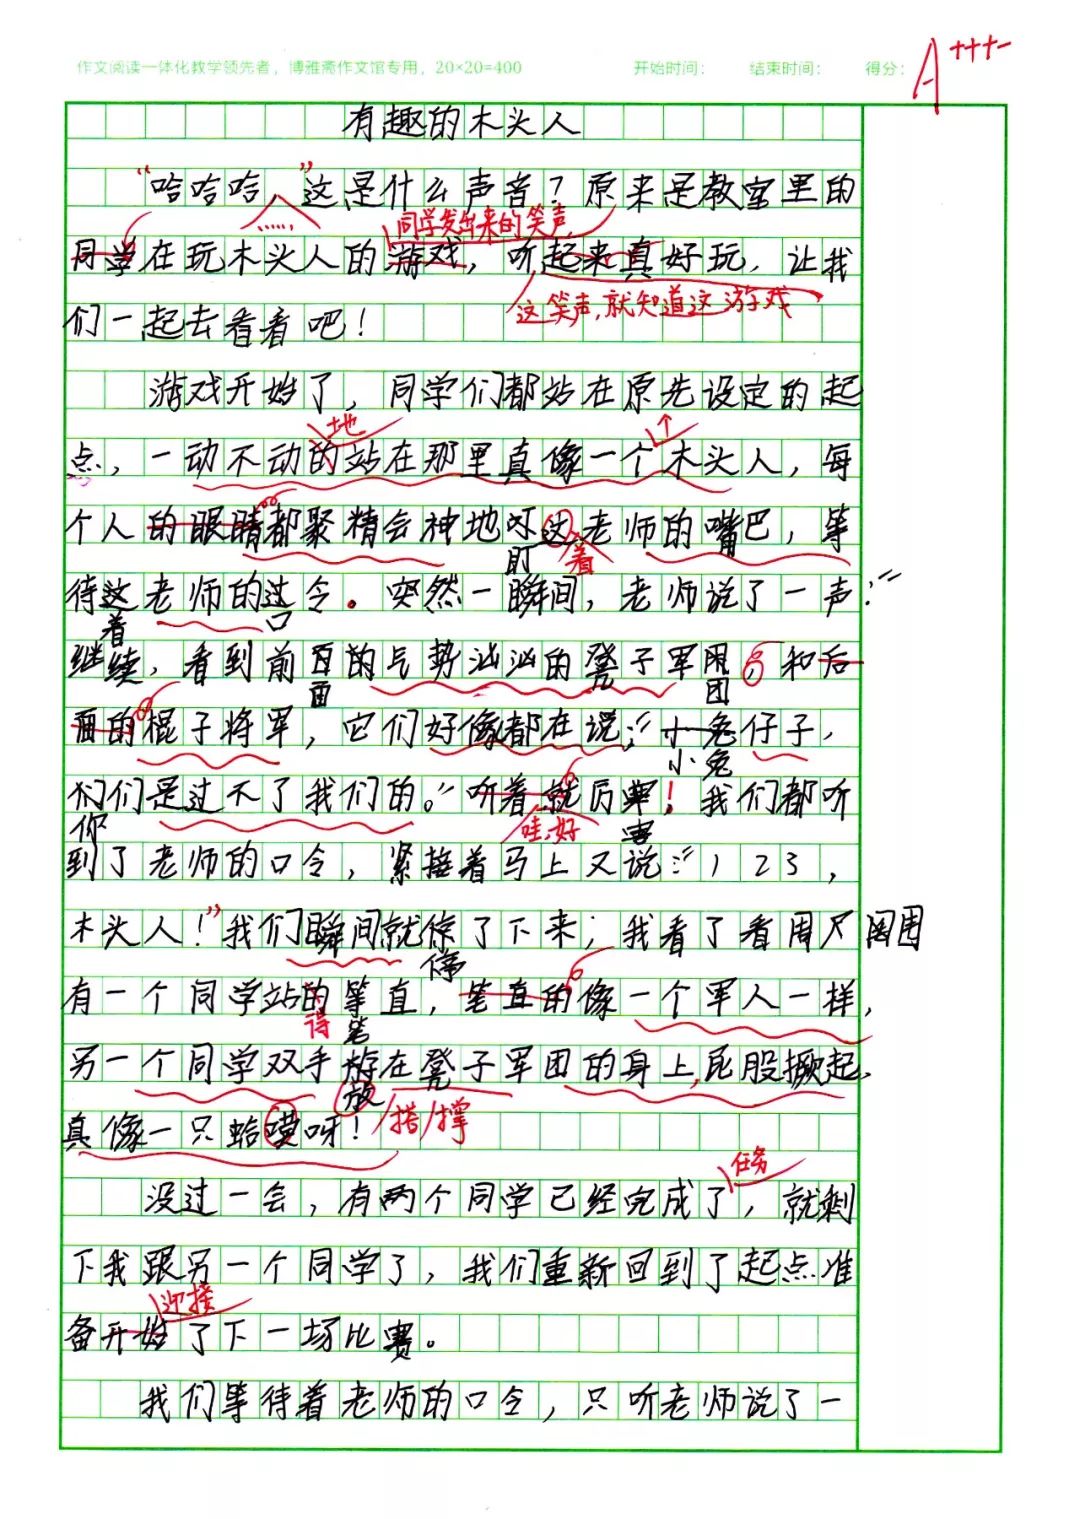 作文阅读一体化教学领先者，博雅斋作文馆专用，20×20=400 开始时间： 结束时间： 得分： A+++
有趣的木头人
“哈哈哈，”这是什么声音？原来是教室里的
……
同学发出来的笑声，
同学在玩木头人的游戏，听起来真好玩，让我
这笑声，就知道这游戏
们一起去看看吧！
游戏开始了，同学们都站在原先设定的起
地
点，一动不动的站在那里真像一个木头人，每
个人的眼睛都聚精会神地盯这老师的嘴巴，等
盯 着
待这老师的过令。突然一瞬间，老师说了一声：“
着 口
继续，看到前百的气势汹汹的凳子军用，和后
面 团
面的棍子将军，它们好像都在说：“小兔仔子，
小兔
们们是过不了我们的。”听着就厉害！我们都听
你 哇，好 害
到了老师的口令，紧接着马上又说：“123，
木头人！”我们瞬间就停了下来；我看了看周围
停
有一个同学站的等直，笔直的像一个军人一样，
得 笔
另一个同学双手游在凳子军团的身上，屁股撅起，
放 搭/撑
真像一只蛤蟆呀！
任务
没过一会，有两个同学已经完成了，就剩
下我跟另一个同学了，我们重新回到了起点准
迎接
备开始了下一场比赛。
我们等待着老师的口令，只听老师说了一